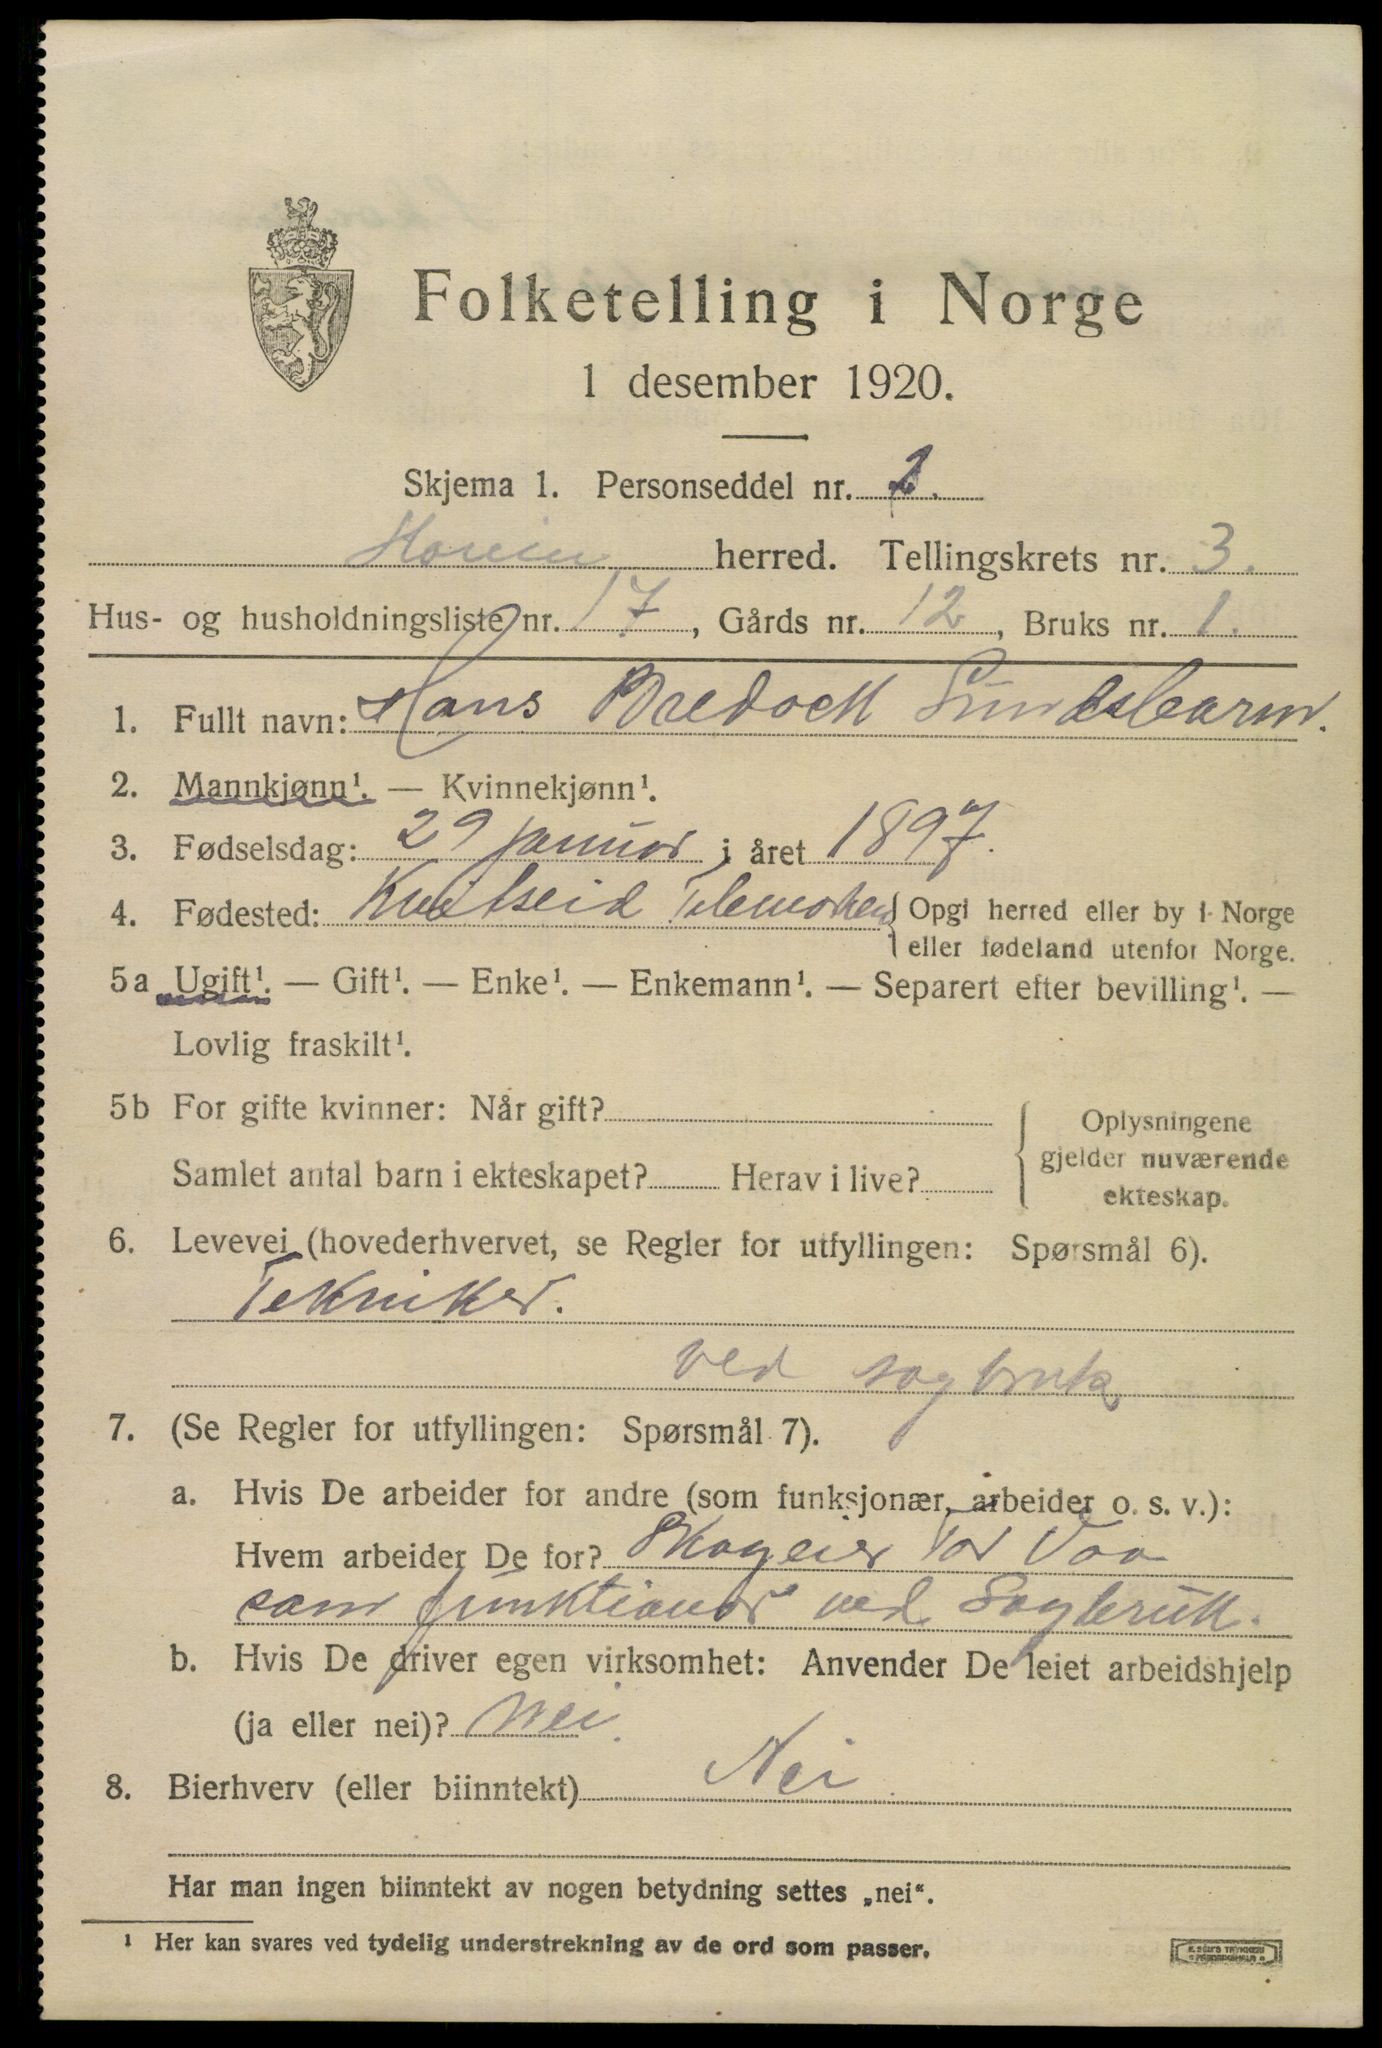 Folketelling i Norge
1 desember 1920.
Skjema 1. Personseddel nr. 1.
Hovin herred. Tellingskrets nr. 3.
Hus- og husholdningsliste nr. 17, Gårds nr. 12, Bruks nr. 1.
1. Fullt navn: Hans Bredock Sundsbarm.
2. Mannkjønn¹. — Kvinnekjønn¹.
3. Fødselsdag: 29 januar i året 1897.
4. Fødested: Kvitseid Telemarken { Opgi herred eller by i Norge
eller fødeland utenfor Norge.
5a Ugift¹. — Gift¹. — Enke¹. — Enkemann¹. — Separert efter bevilling¹. —
Lovlig fraskilt¹.
5b For gifte kvinner: Når gift?
Samlet antal barn i ekteskapet? Herav i live?
Oplysningene
gjelder nuværende
ekteskap.
6. Levevei (hovederhvervet, se Regler for utfyllingen: Spørsmål 6).
Tekniker.
ved sagbruk
7. (Se Regler for utfyllingen: Spørsmål 7).
a. Hvis De arbeider for andre (som funksjonær, arbeider o. s. v.):
Hvem arbeider De for? Skogeier Tor Vaa
som funktionær ved Sagbruk.
b. Hvis De driver egen virksomhet: Anvender De leiet arbeidshjelp
(ja eller nei)? Nei.
8. Bierhverv (eller biinntekt) Nei
Har man ingen biinntekt av nogen betydning settes „nei“.
¹ Her kan svares ved tydelig understrekning av de ord som passer.